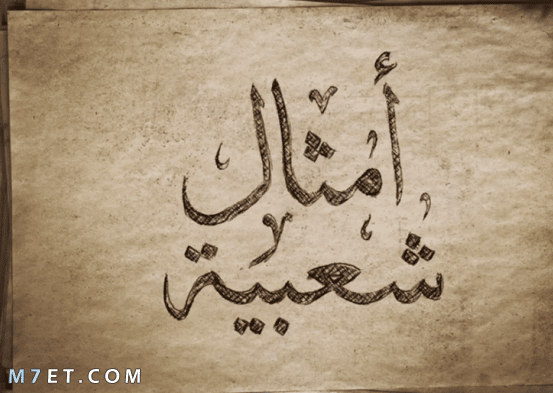 أمثال
شعبية
M7ET.COM